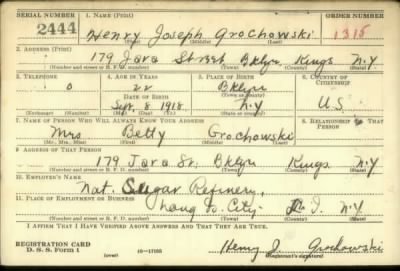 SERIAL NUMBER 1. NAME (Print) ORDER NUMBER
2444 Henry Joseph Grochowski 1315
(First) (Middle) (Last)
2. ADDRESS (Print)
179 Java Street Bklyn Kings N.Y
(Number and street or R. F. D. number) (Town) (County) (State)
3. TELEPHONE 4. AGE IN YEARS 5. PLACE OF BIRTH 6. COUNTRY OF CITIZENSHIP
0 22 Bklyn
DATE OF BIRTH (Town or county)
Sept. 8, 1918 N.Y U.S
(Exchange) (Number) (Mo.) (Day) (Yr.) (State or country)
7. NAME OF PERSON WHO WILL ALWAYS KNOW YOUR ADDRESS 8. RELATIONSHIP OF THAT PERSON
Mrs Betty Grochowski
(Mr., Mrs., Miss) (First) (Middle) (Last)
9. ADDRESS OF THAT PERSON
179 Java St. Bklyn Kings N.Y
(Number and street or R. F. D. number) (Town) (County) (State)
10. EMPLOYER'S NAME
Nat. Sugar Refinery,
11. PLACE OF EMPLOYMENT OR BUSINESS
Long Is. City L. I. N.Y
(Number and street or R. F. D. number) (Town) (County) (State)
I AFFIRM THAT I HAVE VERIFIED ABOVE ANSWERS AND THAT THEY ARE TRUE.
REGISTRATION CARD
D. S. S. Form 1 (over) 16—17105 Henry J. Grochowski
(Registrant's signature)